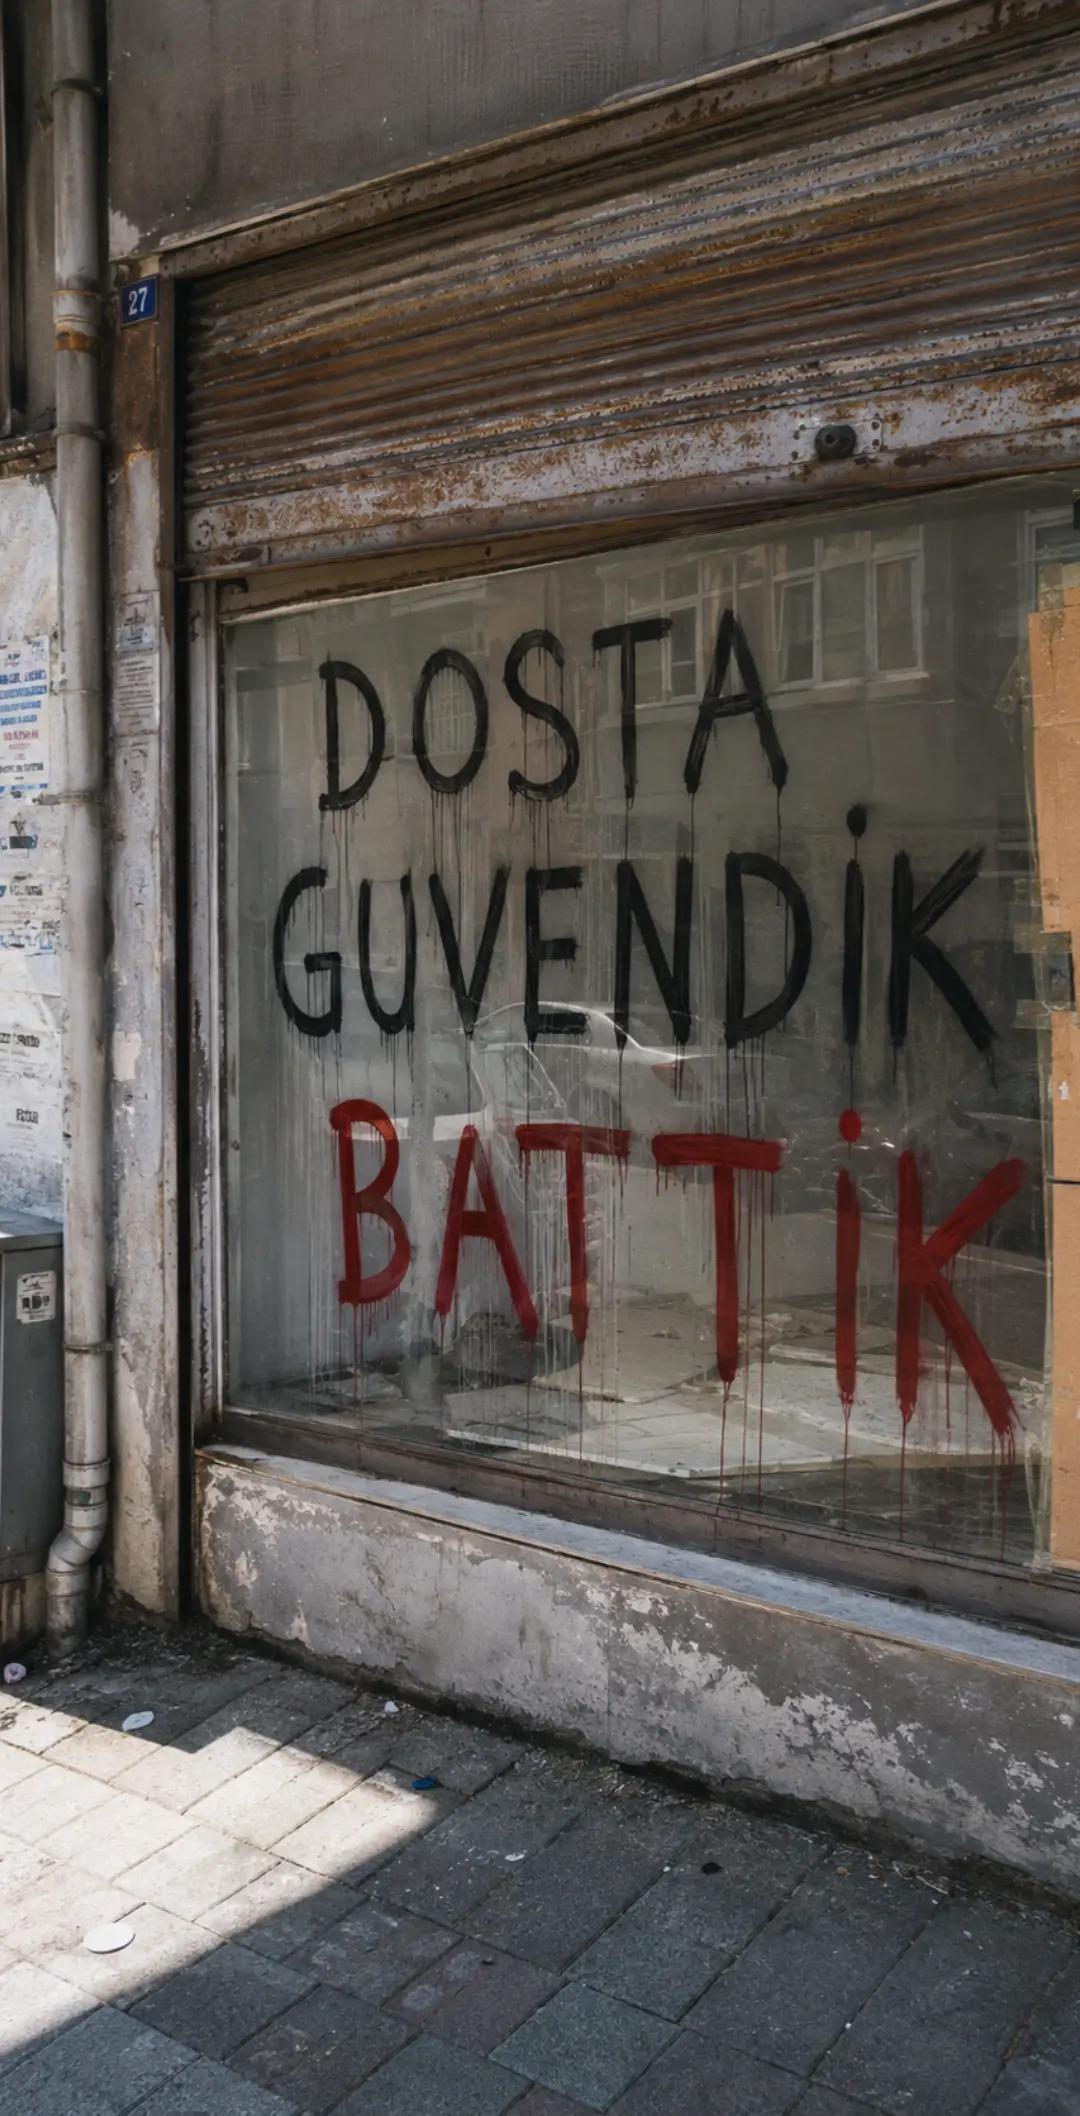 27
DOSTA
GUVENDİK
BATTİK